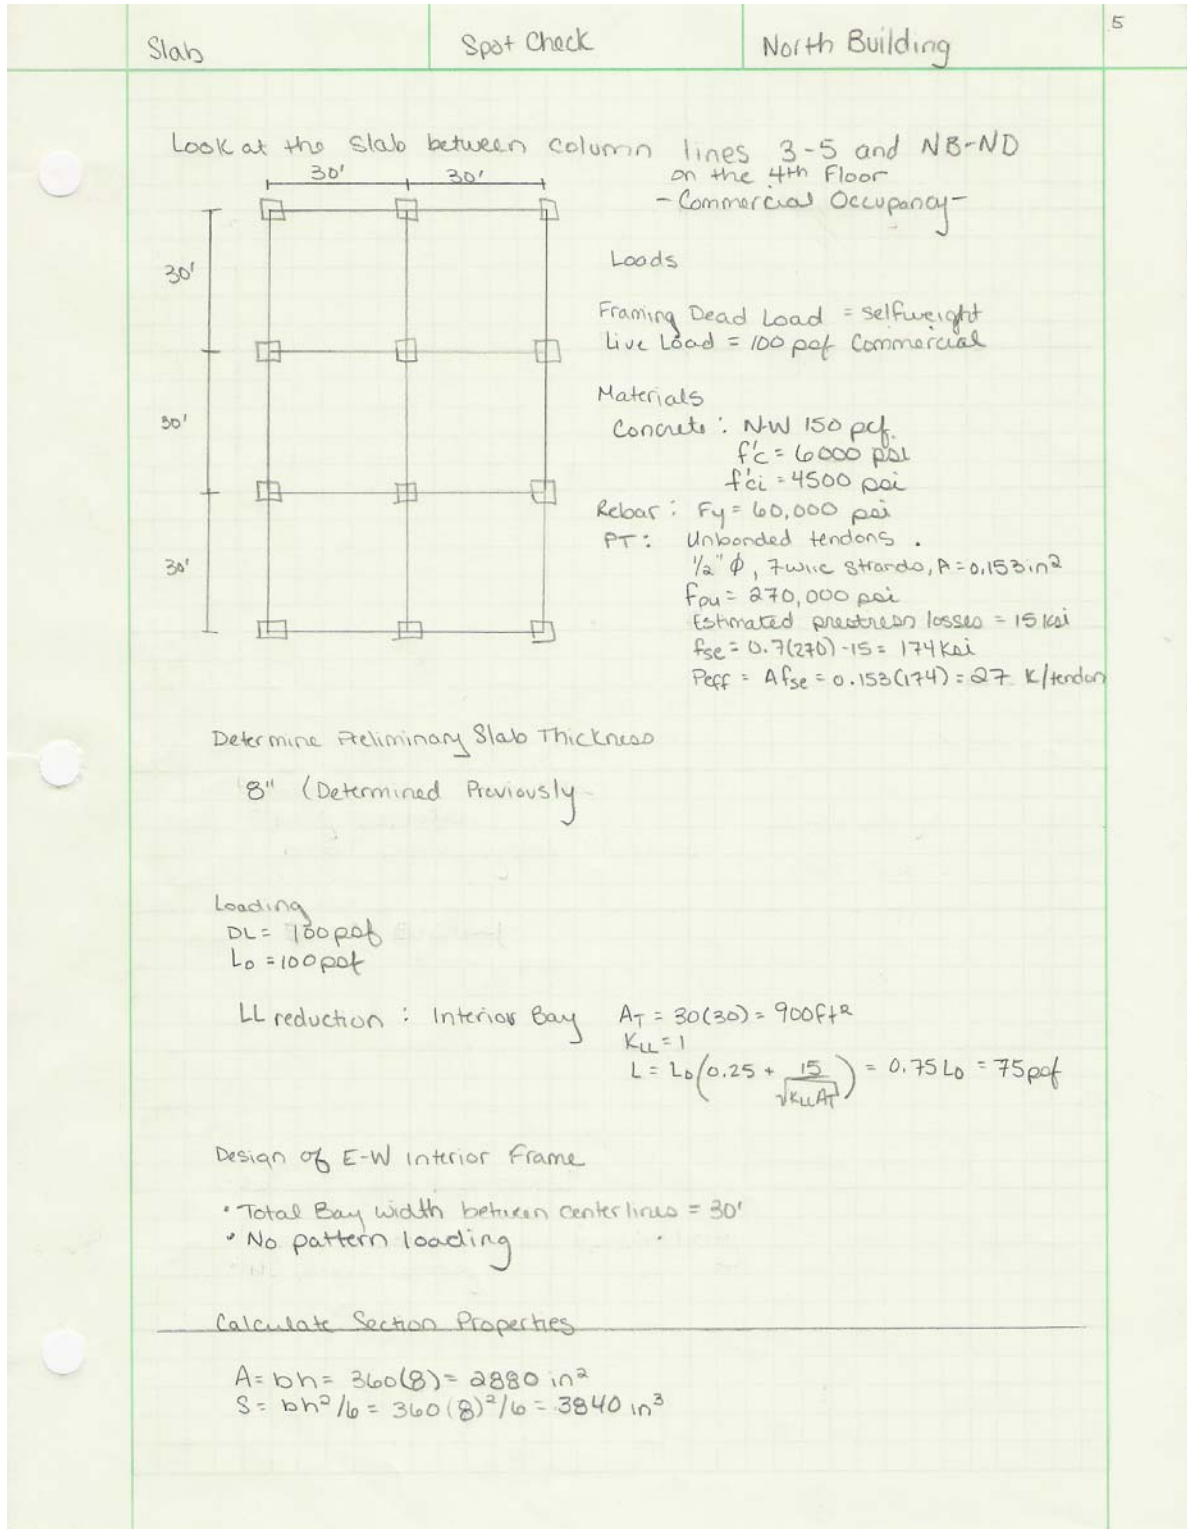 5
Slab Spot Check North Building
Look at the slab between column lines 3-5 and NB-ND
on the 4th Floor
- Commercial Occupancy -
30' 30'
30'
30'
30'
Loads
Framing Dead Load = selfweight
Live Load = 100 psf Commercial
Materials
Concrete: N.W 150 pcf.
f'c = 6000 psi
f'ci = 4500 psi
Rebar: Fy = 60,000 psi
PT: Unbonded tendons.
1/2" ϕ, 7 wire strands, A = 0.153 in²
fpu = 270,000 psi
Estimated prestress losses = 15 ksi
fse = 0.7(270) - 15 = 174 ksi
Peff = A fse = 0.153(174) = 27 K/tendon
Determine Preliminary Slab Thickness
8" (Determined Previously
Loading
DL = 100 psf
Lo = 100 psf
LL reduction: Interior Bay AT = 30(30) = 900 ft²
KLL = 1
L = Lo(0.25 + 15/√KLLAT) = 0.75 Lo = 75 psf
Design of E-W interior Frame
• Total Bay width between centerlines = 30'
• No pattern loading
Calculate Section Properties
A = bh = 360(8) = 2880 in²
S = bh²/6 = 360(8)²/6 = 3840 in³